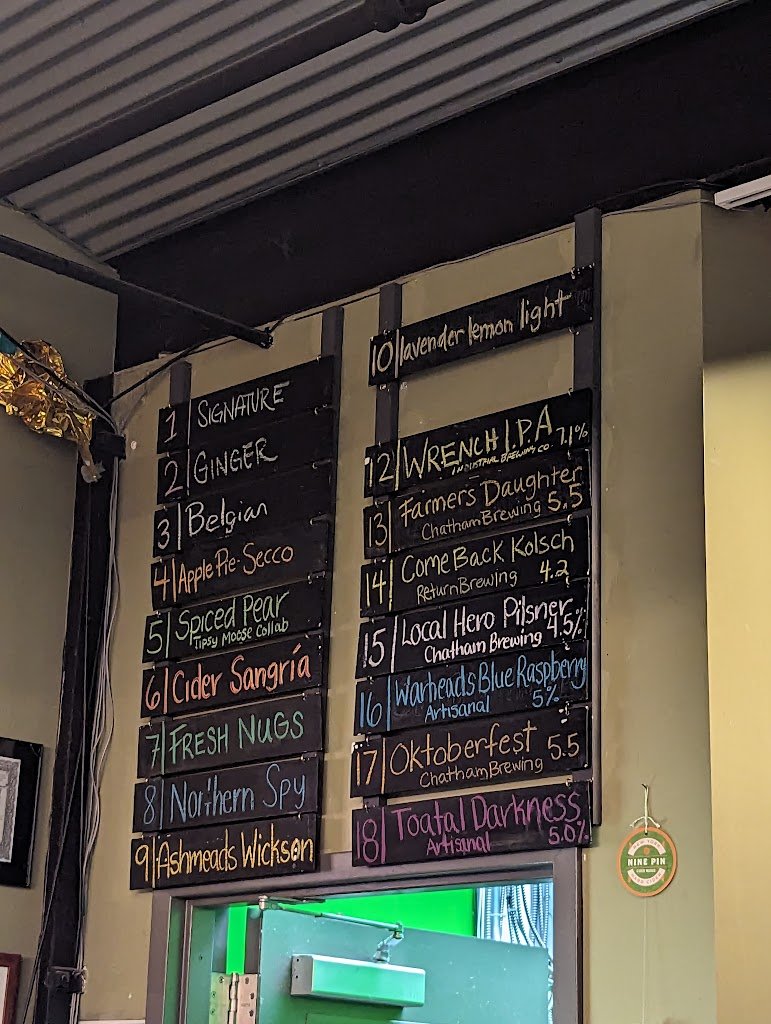 1 | SIGNATURE
2 | GINGER
3 | Belgian
4 | Apple Pie-Secco
5 | Spiced Pear
Tipsy Moose Collab
6 | Cider Sangría
7 | FRESH NUGS
8 | Northern Spy
9 | Ashmeads Wickson
10 | lavender lemon light
12 | WRENCH I.P.A
INDUSTRIAL BREWING CO. 7.1%
13 | Farmers Daughter
Chatham Brewing 5.5
14 | Come Back Kolsch
Return Brewing 4.2
15 | Local Hero Pilsner
Chatham Brewing 4.5%
16 | Warheads Blue Raspberry
Artisanal 5%
17 | Oktoberfest 5.5
Chatham Brewing
18 | Toatal Darkness
Artisanal 5.0%
NEW YORK
NINE PIN
CIDER WORKS
HARD CIDER